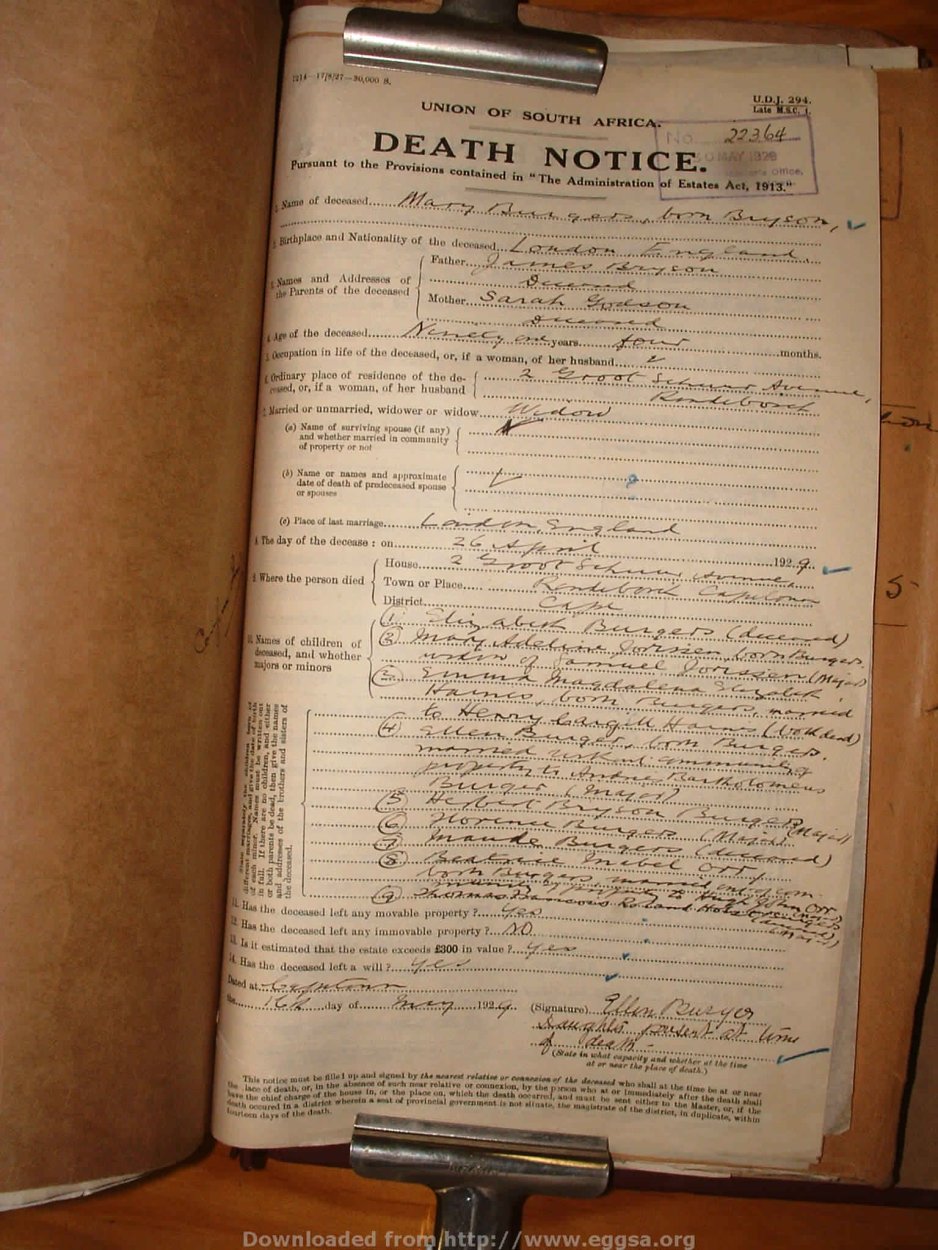 1214—17/8/27—30,000 S.
U.D.J. 294.
Late M.S.C. 1.
UNION OF SOUTH AFRICA.
No. 22364
MAY 1929
Office.
DEATH NOTICE.
Pursuant to the Provisions contained in "The Administration of Estates Act, 1913."
1. Name of deceased Mary Burgers, born Bryson,
2. Birthplace and Nationality of the deceased London England.
3. Names and Addresses of the Parents of the deceased
Father James Bryson
Deceased
Mother Sarah Godson
Deceased
4. Age of the deceased Ninety one years four months.
5. Occupation in life of the deceased, or, if a woman, of her husband
6. Ordinary place of residence of the deceased, or, if a woman, of her husband
2 Groot Schuur Avenue,
Rondebosch
7. Married or unmarried, widower or widow Widow
(a) Name of surviving spouse (if any)
and whether married in community
of property or not
(b) Name or names and approximate
date of death of predeceased spouse
or spouses
(c) Place of last marriage London England
8. The day of the decease: on 26 April 1929.
9. Where the person died
House 2 Groot Schuur Avenue,
Town or Place Rondebosch Capetown
District Cape
10. Names of children of
deceased, and whether
majors or minors
(1) Elizabeth Burgers (deceased)
(2) Mary Adeline Jorissen, born Burgers,
widow of Samuel Jorissen (Major)
(3) Emma Magdalena Elizabeth
Haines, born Burgers, married
to Henry Cargill Haines (both dead)
(4) Ellen Burger, born Burgers.
married without community of
property to Andre Bartholomeus
Burger (Major)
(5) Herbert Bryson Burgers (Major)
(6) Florence Burgers (Major)
(7) Maude Burgers (deceased)
(8) Beatrice Mabel Orr,
born Burgers, married out of com-
munity of property to Hugh John Orr
(9) Thomas Francois Roland Burgers
State separately the children born of
different marriages, and give the date of birth
of each minor. Names must be written out
in full. If there are no children, and either
or both parents be dead, then give the names
and addresses of the brothers and sisters of
the deceased.
11. Has the deceased left any movable property? Yes
12. Has the deceased left any immovable property? No
13. Is it estimated that the estate exceeds £300 in value? Yes
14. Has the deceased left a will? Yes
Dated at Capetown
the 16th day of May 1929.
(Signature) Ellen Burger
Daughter present at time
of death.
(State in what capacity and whether at the time
at or near the place of death.)
This notice must be filled up and signed by the nearest relative or connexion of the deceased who shall at the time be at or near
the place of death, or, in the absence of such near relative or connexion, by the person who at or immediately after the death shall
have the chief charge of the house in, or the place on, which the death occurred, and must be sent either to the Master, or, if the
death occurred in a district wherein a seat of provincial government is not situate, the magistrate of the district, in duplicate, within
fourteen days of the death.
5
Downloaded from http://www.eggsa.org